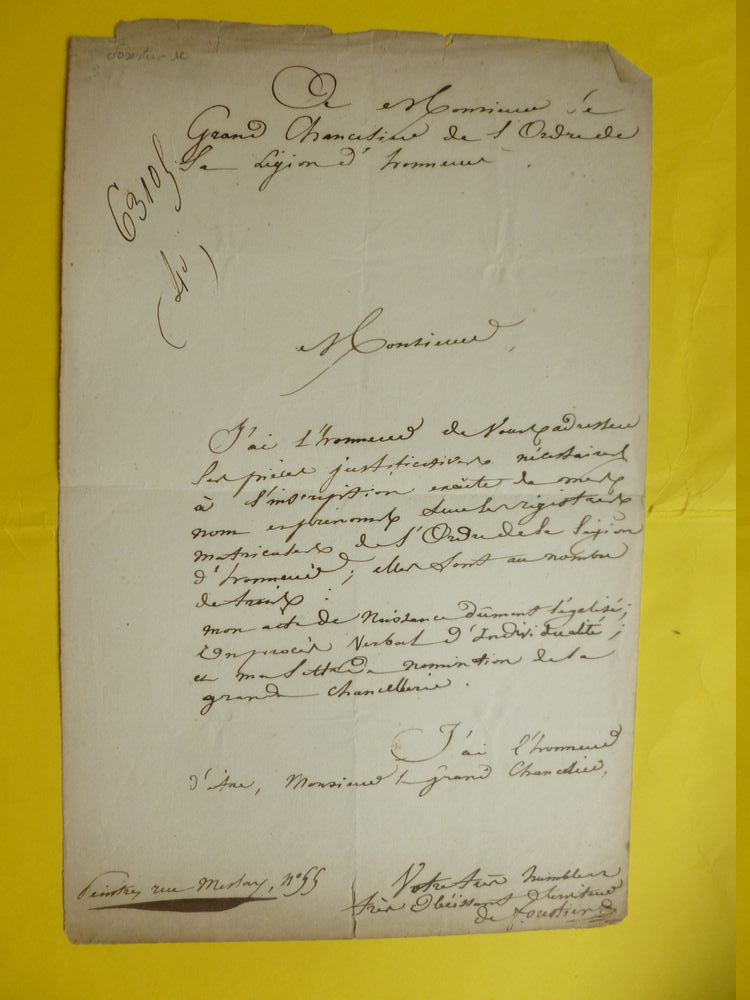 A Monsieur le
Grand Chancelier de l'Ordre de
la Légion d'honneur.
63105
Monsieur,
J'ai l'honneur de vous adresser
les pièces justificatives nécessaires
à l'inscription exacte de mes
nom et prénoms sur les registres
matricules de l'Ordre de la Légion
d'honneur; elles sont au nombre
de trois:
mon acte de Naissance dûment légalisé;
Un procès Verbal d'Individualité;
et ma lettre de nomination de la
grande Chancellerie.
J'ai l'honneur
d'être, Monsieur le grand Chancelier,
Votre très humble et
très Obéissant Serviteur
de
rue Meslay, n° 55